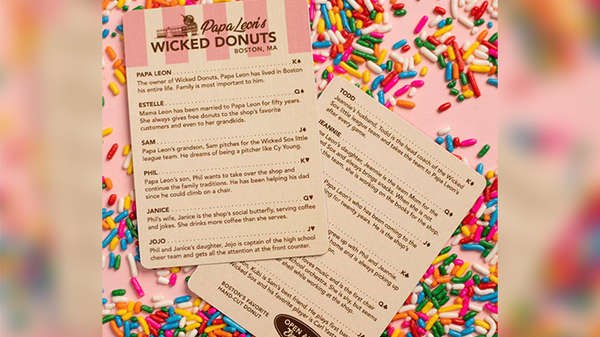 Papa Leon's
WICKED DONUTS
BOSTON, MA
PAPA LEON K♠
The owner of Wicked Donuts, Papa Leon has lived in Boston
his entire life. Family is most important to him.
ESTELLE Q♠
Mama Leon has been married to Papa Leon for fifty years.
She always gives free donuts to the shop's favorite
customers and even to her grandkids.
SAM J♠
Papa Leon's grandson, Sam pitches for the Wicked Sox little
league team. He dreams of being a pitcher like Cy Young.
PHIL K♥
Papa Leon's son, Phil wants to take over the shop and
continue the family traditions. He has been helping his dad
since he could climb on a chair.
JANICE Q♥
Phil's wife, Janice is the shop's social butterfly, serving coffee
and jokes. She drinks more coffee than she serves.
JOJO J♥
Phil and Janice's daughter, Jojo is captain of the high school
cheer team and gets all the attention at the front counter.
TODD
Jeannie's husband, Todd is the head coach of the Wicked
Sox little league team and takes the team to Papa Leon's
after every game.
JEANNIE
Papa Leon's daughter, Jeannie is the team Mom for the
Sox and always brings snacks. When she is not
the team, she is working on the books for the shop.
Papa Leon's who has been coming to the
for twenty years. He is the shop's
grew up with Phil and Jeannie
home and is always picking up
music and is the first chair
school orchestra. She is shy, but seems
shell while working at the shop.
Kubi is Sam's best friend. He plays first
Wicked Sox and his favorite player is Carl
BOSTON'S FAVORITE
HAND-CUT DONUT
OPEN